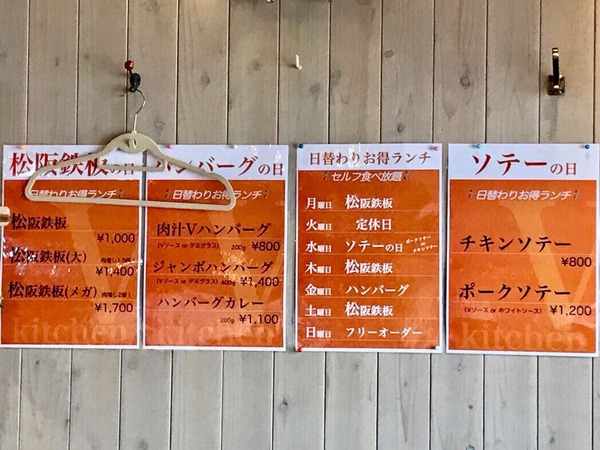 松阪鉄板の日
日替わりお得ランチ
松阪鉄板
¥1,000
松阪鉄板(大) 肉増し1.5倍
¥1,400
松阪鉄板(メガ) 肉増し2倍
¥1,700
kitchen
ハンバーグの日
日替わりお得ランチ
肉汁Vハンバーグ
(Vソース or デミグラス) 200g ¥800
ジャンボハンバーグ
(Vソース or デミグラス) 400g ¥1,400
ハンバーグカレー
200g ¥1,100
kitchen
日替わりお得ランチ
セルフ食べ放題
月曜日 松阪鉄板
火曜日 定休日
水曜日 ソテーの日 ポークソテー or チキンソテー
木曜日 松阪鉄板
金曜日 ハンバーグ
土曜日 松阪鉄板
日曜日 フリーオーダー
ソテーの日
日替わりお得ランチ
チキンソテー
¥800
ポークソテー
(Vソース or ホワイトソース) ¥1,200
kitchen